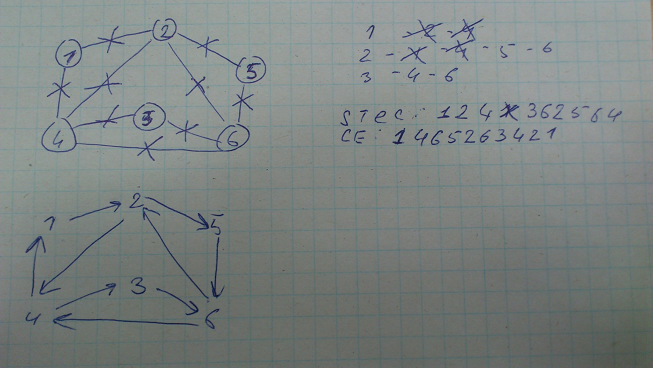 2
1
5
3
4
6
1 -2 -4
2 -1 -4 -5 -6
3 -4 -6
STEC: 1241362564
CE: 1465263421
2
1
5
3
4
6